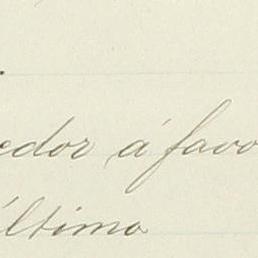 edor á favo
último